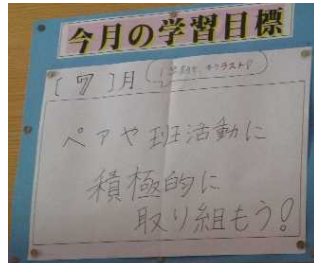 今月の学習目標
[ 7 ]月
ペアや班活動に
積極的に
取り組もう!